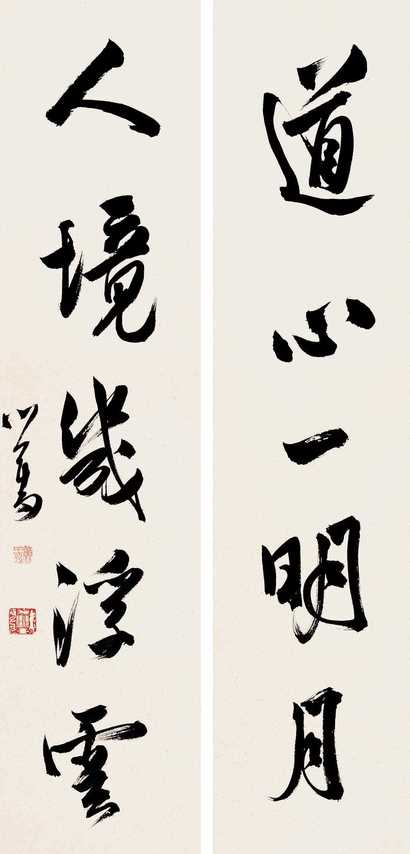 道心一明月
人境幾浮雲
心畬